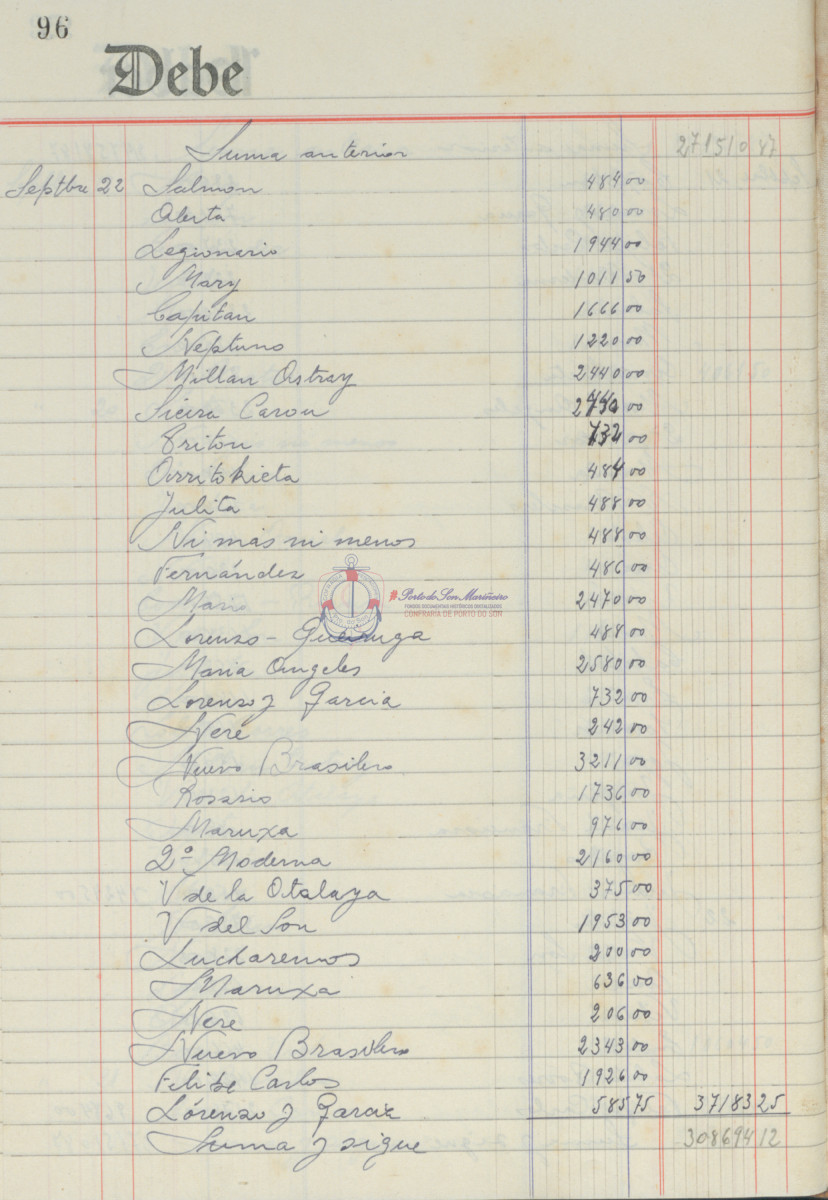 96
Debe
Suma anterior 271510 87
Septbre 22 Salmon 484 00
Alerta 480 00
Legionario 1944 00
Mary 1011 50
Capitan 1666 00
Neptuno 1220 00
Millan Astray 2440 00
Sieira Carou 2440 00
Triton 732 00
Arritokieta 484 00
Julita 488 00
Ni más ni menos 488 00
Fernández 486 00
Mario 2470 00
Lorenzo - Queiruga 488 00
Maria Angeles 2580 00
Lorenzo y Garcia 732 00
Nere 242 00
Nuevo Brasilero 3211 00
Rosario 1736 00
Maruxa 976 00
2ª Moderna 2160 00
V de la Atalaya 375 00
V del Son 1953 00
Lucharemos 200 00
Maruxa 636 00
Nere 206 00
Nuevo Brasilero 2343 00
Felipe Carlos 1926 00
Lorenzo y Garcia 585 75 37183 25
Suma y sigue 308694 12
#Porto do Son Mariñeiro
FONDOS DOCUMENTAIS HISTÓRICOS DIXITALIZADOS
CONFRARÍA DE PORTO DO SON